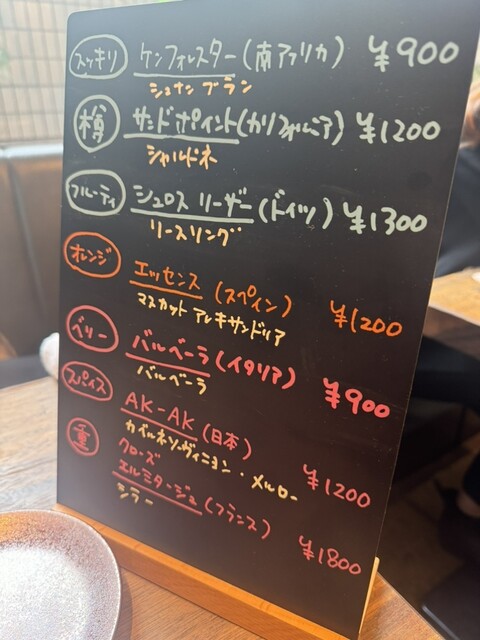 スッキリ ケンフォレスター(南アフリカ) ¥900
シュナンブラン
樽 サンドポイント(カリフォルニア) ¥1200
シャルドネ
フルーティ シュロス リーザー(ドイツ) ¥1300
リースリング
オレンジ エッセンス (スペイン) ¥1200
マスカット アレキサンドリア
ベリー バルベーラ(イタリア) ¥900
バルベーラ
スパイス AK-AK(日本) ¥1200
カベルネソーヴィニヨン・メルロー
重 クローズ
エルミタージュ(フランス) ¥1800
シラー